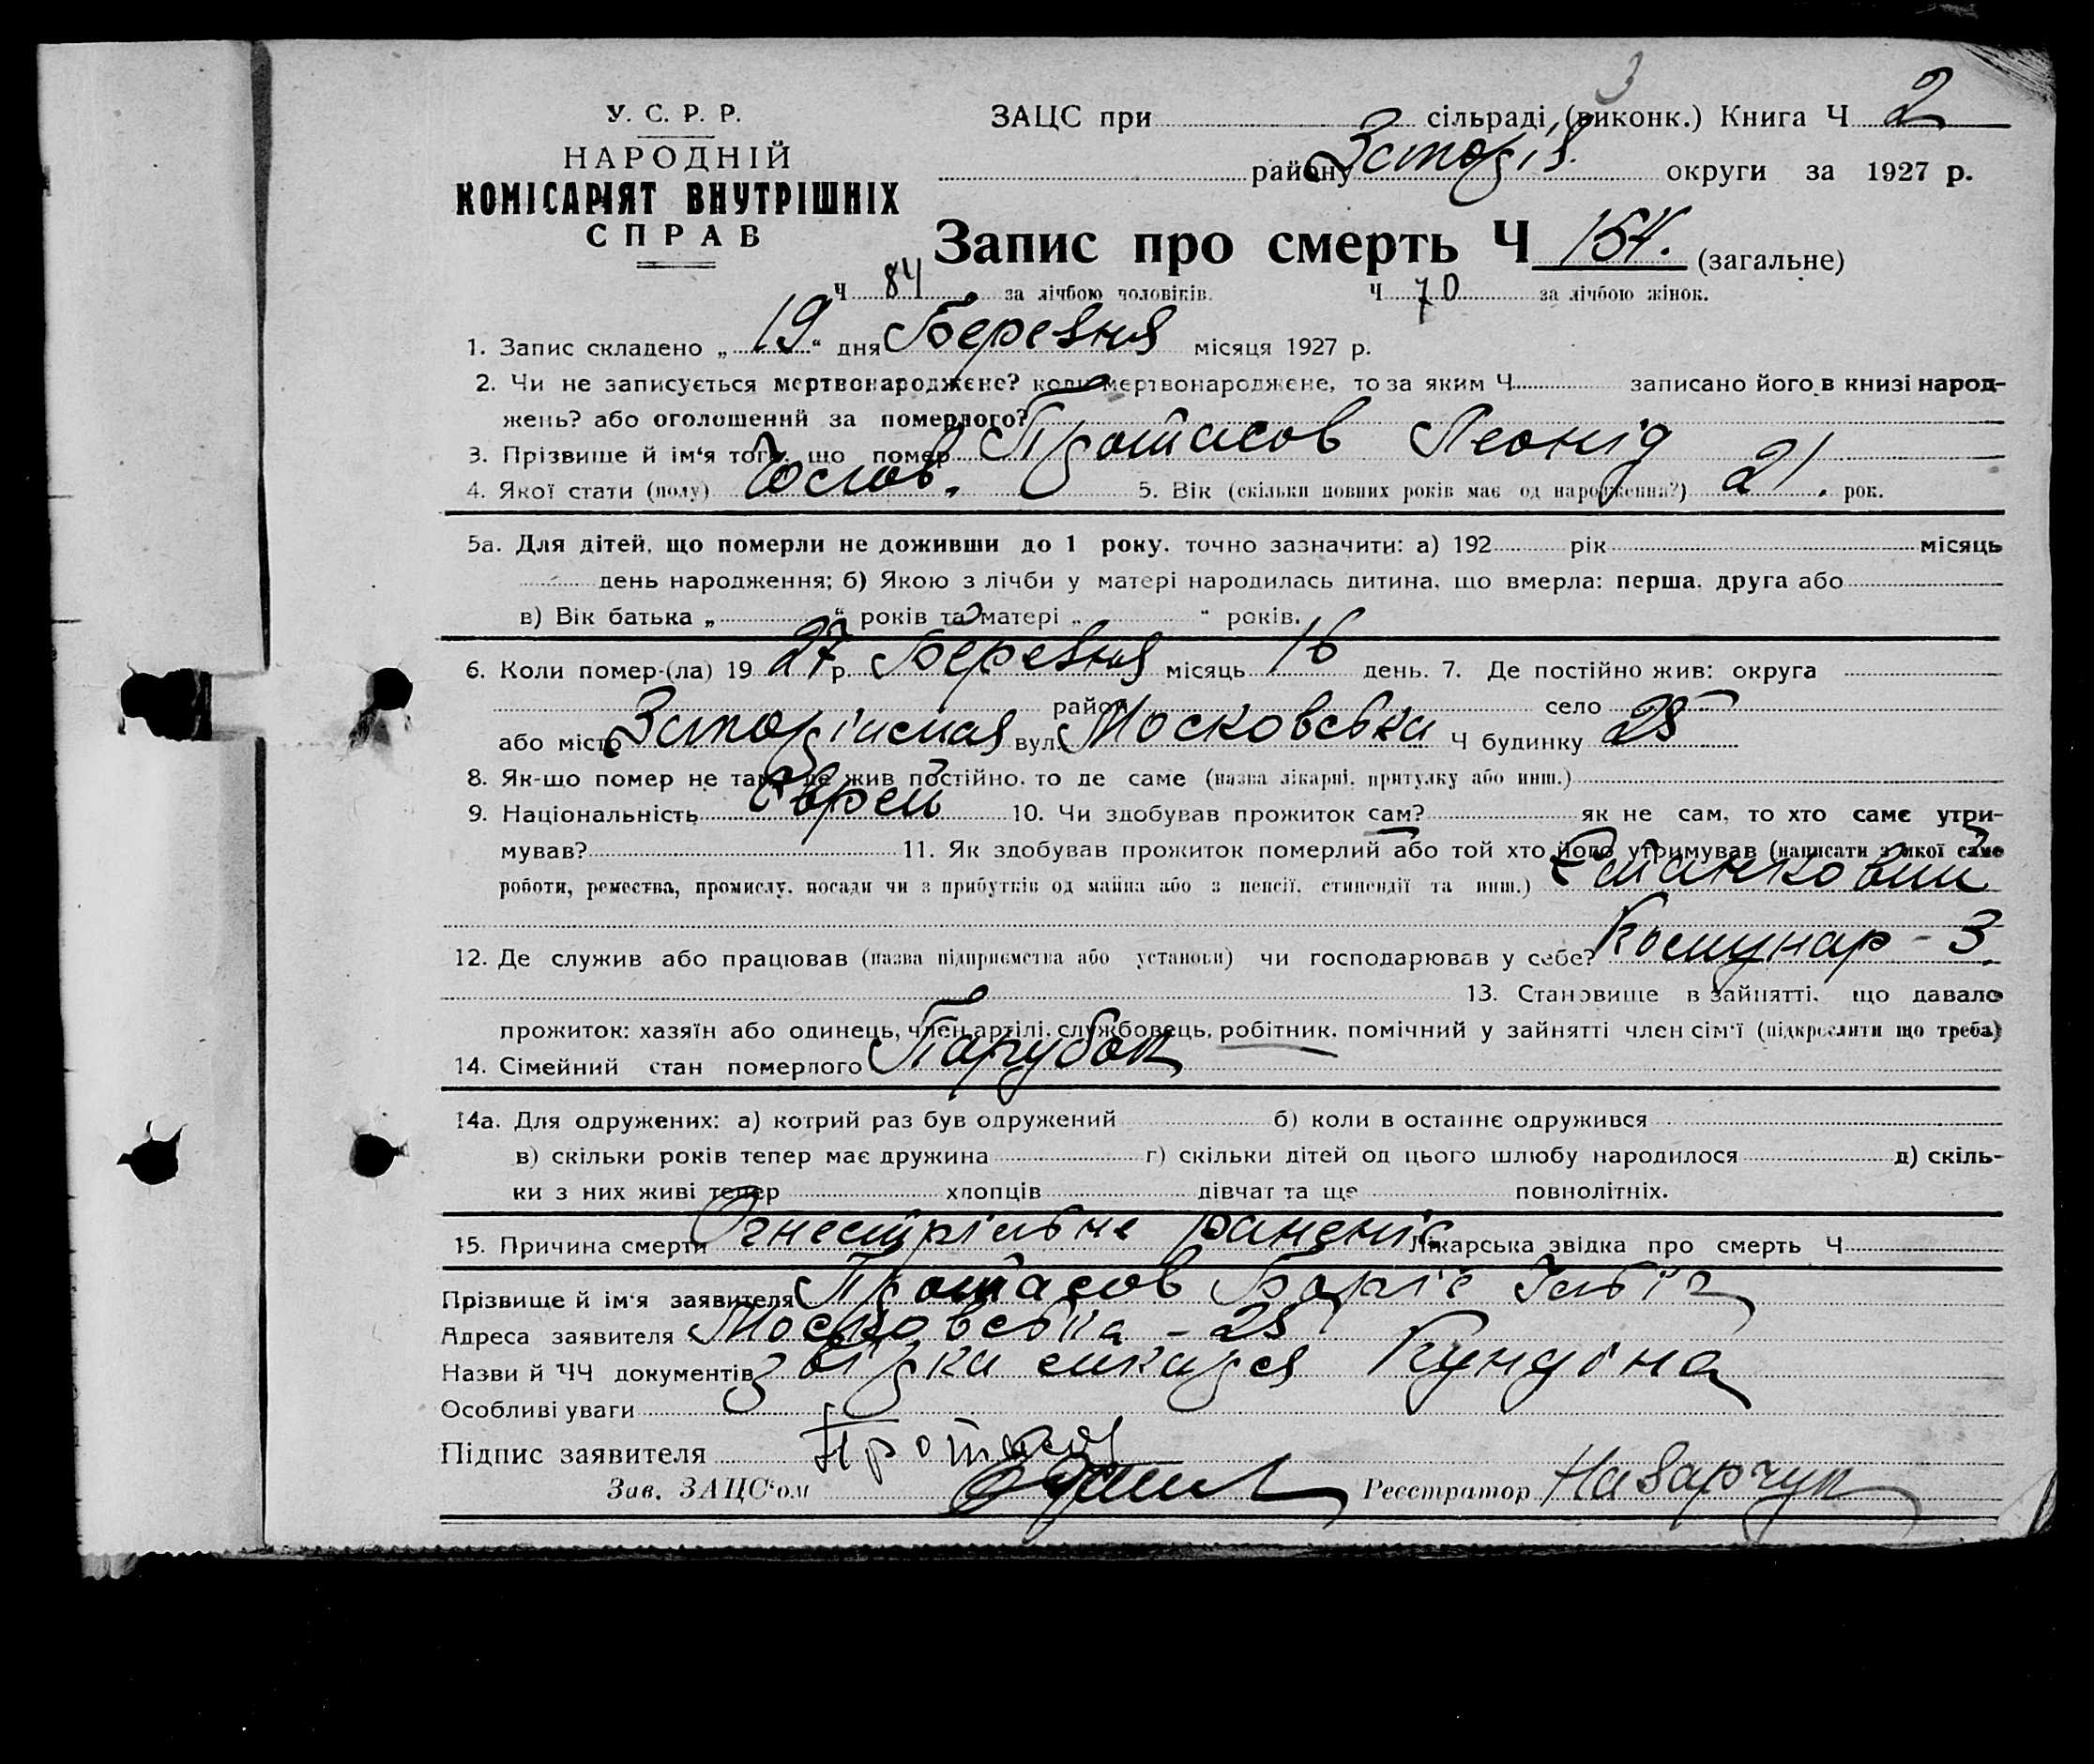 3
У. С. Р. Р.
НАРОДНІЙ
КОМІСАРІЯТ ВНУТРІШНІХ
СПРАВ
ЗАЦС при сільраді (виконк.) Книга Ч 2
району округи за 1927 р.
Запис про смерть Ч 154. (загальне)
Ч 84 за лічбою чоловіків. Ч 70 за лічбою жінок.
1. Запис складено „ 19 “ дня Березня місяця 1927 р.
2. Чи не записується мертвонароджене? коли мертвонароджене, то за яким Ч. записано його в книзі народ-
жень? або оголошений за померлого?
3. Прізвище й ім'я того, що помер Протасов Леонід
4. Якої стати (полу) Чолов. 5. Вік (скільки повних років має од народження?) 21. рок.
5а. Для дітей, що померли не доживши до 1 року, точно зазначити: а) 192 рік місяць
день народження; б) Якою з лічби у матері народилась дитина, що вмерла: перша, друга або
в) Вік батька „ “ років та матері „ “ років.
6. Коли помер-(ла) 19 27 р. Березня місяць 16 день. 7. Де постійно жив: округа
район село
або місто вул. Московська Ч будинку 25
8. Як-що помер не там, де жив постійно, то де саме (назва лікарні, притулку або инш.)
9. Національність Єврей 10. Чи здобував прожиток сам? як не сам, то хто саме утри-
мував? 11. Як здобував прожиток померлий або той хто його утримував (написати з якої саме
роботи, ремества, промислу, посади чи з прибутків од майна або з пенсії, стипендії та инш.)
12. Де служив або працював (назва підприємства або установи) чи господарював у себе? Комунар - З.
13. Становище в зайнятті, що давало
прожиток: хазяїн або одинець, член артілі, службовець, робітник, помічний у зайнятті член сім'ї (підкреслити що треба)
14. Сімейний стан померлого Парубок
14а. Для одружених: а) котрий раз був одружений б) коли в останнє одружився
в) скільки років тепер має дружина г) скільки дітей од цього шлюбу народилося д) скіль-
ки з них живі тепер хлопців дівчат та ще повнолітніх.
15. Причина смерти Огнестрільне раненнє Лікарська звідка про смерть Ч
Прізвище й ім'я заявителя Протасов Боріс
Адреса заявителя Московська - 25
Назви й ЧЧ документів звідка лікаря Кундіна
Особливі уваги
Підпис заявителя
Зав. ЗАЦС'ом Реєстратор Назарчук